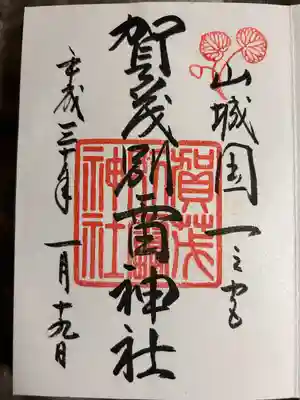 山城国一之宮
賀茂別雷神社
平成三十年一月十九日
賀茂
別雷
神社